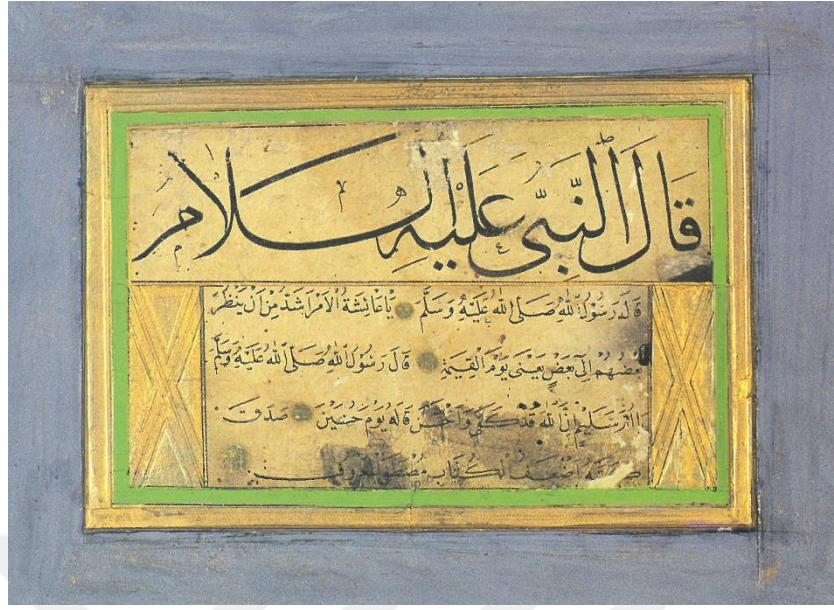 قَالَ النَّبِىُّ عَلَيْهِ السَّلَامُ
قَالَ رَسُولُ اللهِ صَلَّى اللهُ عَلَيْهِ وَسَلَّمَ يَا عَائِشَةُ الْاَمْرُ اَشَدُّ مِنْ اَنْ يَنْظُرَ
بَعْضُهُمْ اِلَى بَعْضٍ يَعْنِى يَوْمَ الْقِيٰمَةِ قَالَ رَسُولُ اللهِ صَلَّى اللهُ عَلَيْهِ وَسَلَّمَ
سُلَيْمٍ اِنَّ اللهَ قَدْ كَفَى وَاَحْسَنَ قَالَهُ يَوْمَ حُنَيْنٍ صَدَقَ
اَضْعَفُ الْكُتَّابِ مُصْطَفَى